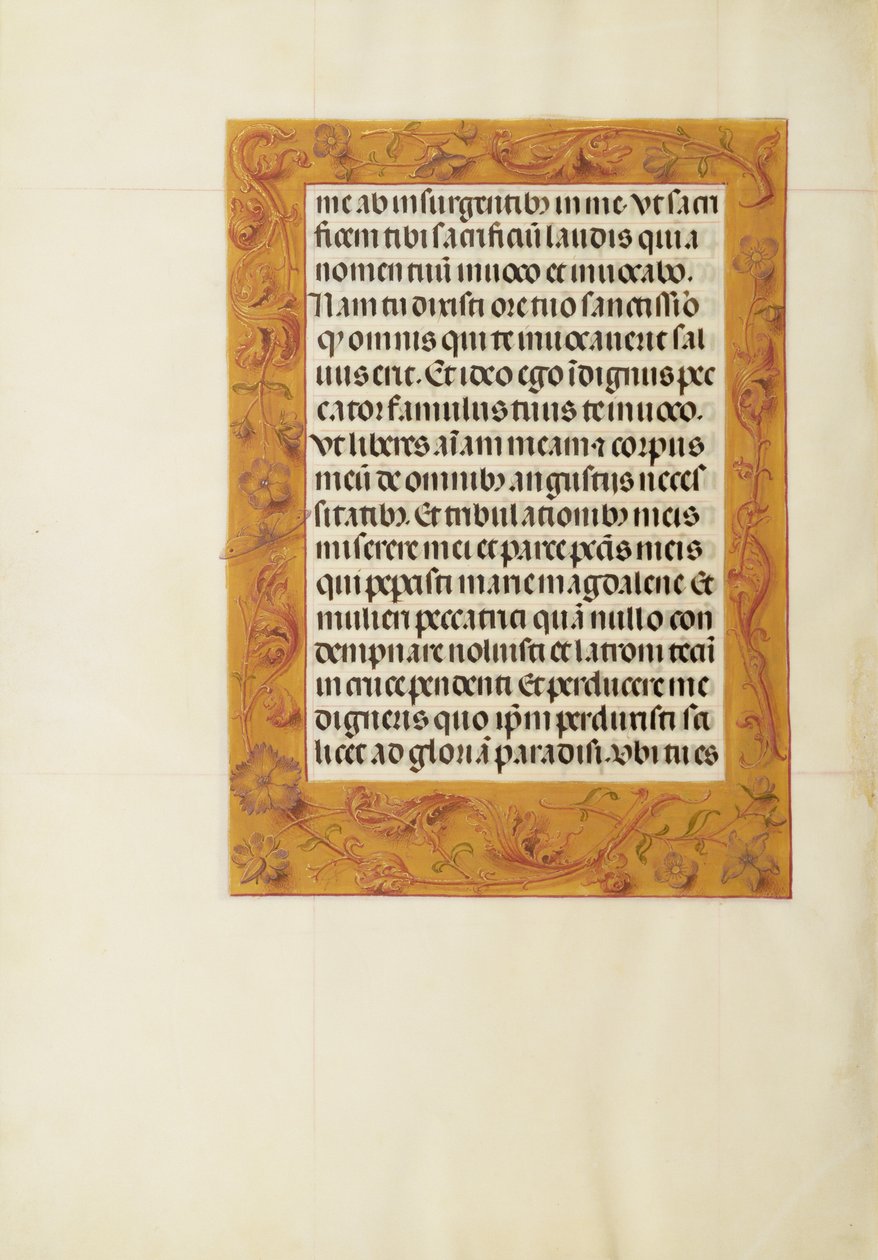 me ab insurgentibꝫ in me. Vt sacri
ficem tibi sacrificiū laudis quia
nomen tuū inuoco et inuocabo.
Nam tu dixisti ore tuo sanctissīo
ꝙ omnis qui te inuocauerit sal
uus erit. Et ideo ego īdignus pec
cator famulus tuus te inuoco.
Vt liberes aīam meam ⁊ corpus
meū de omnibꝫ angustijs neces
sitatibꝫ. Et tribulationibꝫ meis
miserere mei et parce pccīs meis
qui pepcisti marie magdalene Et
mulieri peccatrici quā nullo con
dempnare noluisti et latroni tecū
in cruce pendenti Et perducere me
digneris quo ip̄m perduxisti sci
licet ad gloriā paradisi. Vbi tu es